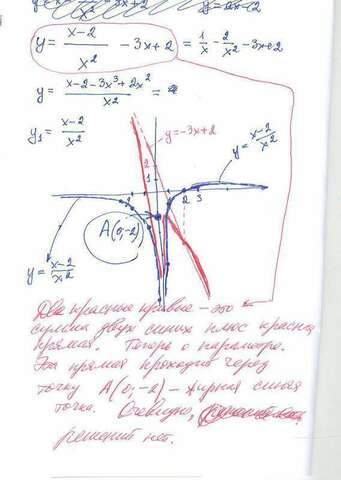 y = x-2/x² - 3x+2 = 1/x - 2/x² - 3x+2
y = x-2-3x³+2x²/x² =
y₁ = x-2/x²
y=-3x+2
y= x-2/x²
2
1
2 3
A(0,-2)
y= x-2/x²
Две красные кривые - это
сумма двух синих плюс красная
прямая. Теперь о параметре.
Эта прямая проходит через
точку A(0,-2) - жирная синяя
точка. Очевидно,
решений нет.